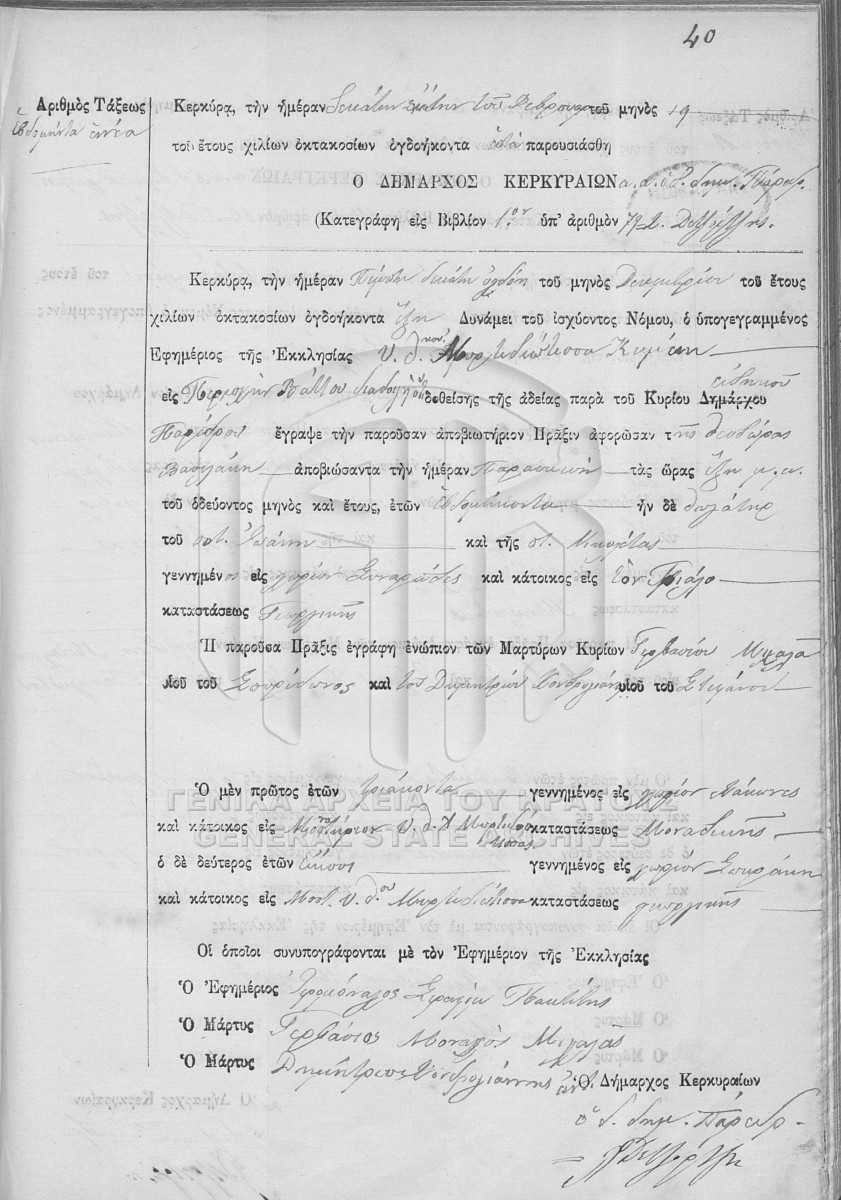 40
Ἀριθμὸς Τάξεως
ἑβδομήντα ἐννέα
Κερκύρᾳ, τὴν ἡμέραν δεκάτην ἐνάτην τοῦ Φεβρουαρ τοῦ μηνὸς 19
τοῦ ἔτους χιλίων ὀκτακοσίων ὀγδοήκοντα ἑπτὰ παρουσιάσθη
Ὁ ΔΗΜΑΡΧΟΣ ΚΕΡΚΥΡΑΙΩΝ α. α. ὁ δημ. Πάρεδρ.
(Κατεγράφη εἰς Βιβλίον 1ον ὑπ' ἀριθμὸν 79
Κερκύρᾳ, τὴν ἡμέραν Πέμπτῃ δεκάτῃ ὀγδόῃ τοῦ μηνὸς Δεκεμβρίου τοῦ ἔτους
χιλίων ὀκτακοσίων ὀγδοήκοντα ἕξη Δυνάμει τοῦ ἰσχύοντος Νόμου, ὁ ὑπογεγραμμένος
Ἐφημέριος τῆς Ἐκκλησίας Υ. Θκου Μυρτιδιώτισσα
εἰς Περιοχὴν Βάττου δοθείσης τῆς ἀδείας παρὰ τοῦ Κυρίου εἰδικοῦ Δημάρχου
Παρέδρου ἔγραψε τὴν παροῦσαν ἀποβιωτήριον Πρᾶξιν ἀφορῶσαν της Θεοδώρας
Βασιλάκη ἀποβιώσαντα τὴν ἡμέραν Παρασκευὴ τὰς ὥρας ἕξη μ.μ.
τοῦ ὁδεύοντος μηνὸς καὶ ἔτους, ἐτῶν ἑβδομήκοντα ἦν δὲ θυγάτηρ
τοῦ ποτ. Ἰωάννη καὶ τῆς ποτ. Νικολέτας
γεννημένος εἰς χωρίον Συναράδες καὶ κάτοικος εἰς τὸν Γιάλο
καταστάσεως Γεωργικῆς
Ἡ παροῦσα Πρᾶξις ἐγράφη ἐνώπιον τῶν Μαρτύρων Κυρίων Γερβασίου Μιχαλᾶ
υἱοῦ τοῦ Σπυρίδωνος καὶ τοῦ Δημητρίου Χονδρογιάννη υἱοῦ τοῦ Στεφάνου
Ὁ μὲν πρῶτος ἐτῶν τριάκοντα γεννημένος εἰς χωρίον
καὶ κάτοικος εἰς Μοναστήριον Υ. Θ. Μυρτιδιωτίσσας καταστάσεως Μοναδικῆς
ὁ δὲ δεύτερος ἐτῶν Εἴκοσι γεννημένος εἰς χωρίον
καὶ κάτοικος εἰς Μοστ. Υ. Θου Μυρτιδιώτισσα καταστάσεως γεωργικῆς
Οἱ ὁποῖοι συνυπογράφονται μὲ τὸν Ἐφημέριον τῆς Ἐκκλησίας
Ὁ Ἐφημέριος Ἱερομόναχος Σεραφὶμ
Ὁ Μάρτυς Γερβάσιος Μοναχὸς Μιχαλᾶς
Ὁ Μάρτυς Δημήτριος Χονδρογιάννης
Ὁ Δήμαρχος Κερκυραίων
ὁ δημ. Πάρεδρ.
ΓΕΝΙΚΑ ΑΡΧΕΙΑ ΤΟΥ ΚΡΑΤΟΥΣ
GENERAL STATE ARCHIVES